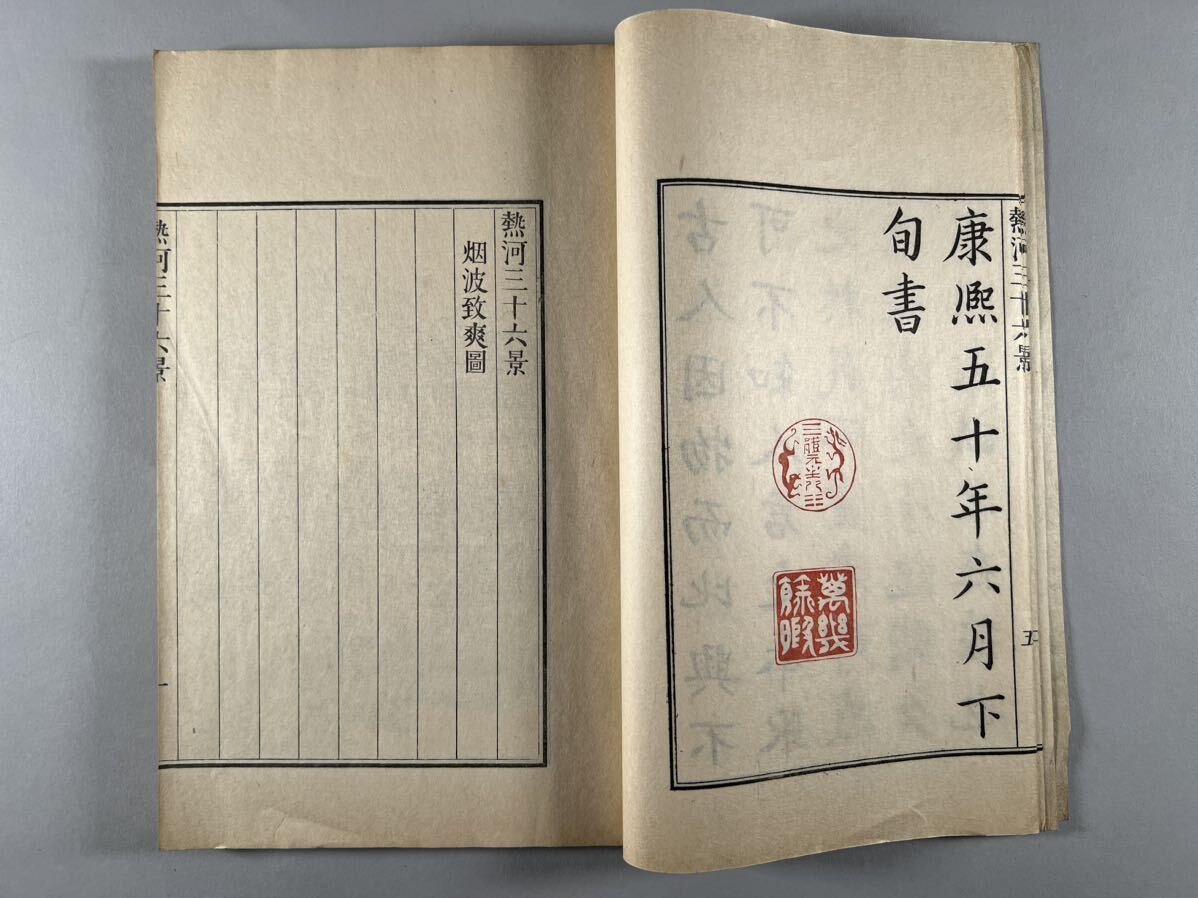 康熙五十年六月下
旬書
體元主人
萬幾
餘暇
熱河三十六景
五
熱河三十六景
烟波致爽圖
熱河三十六景
一